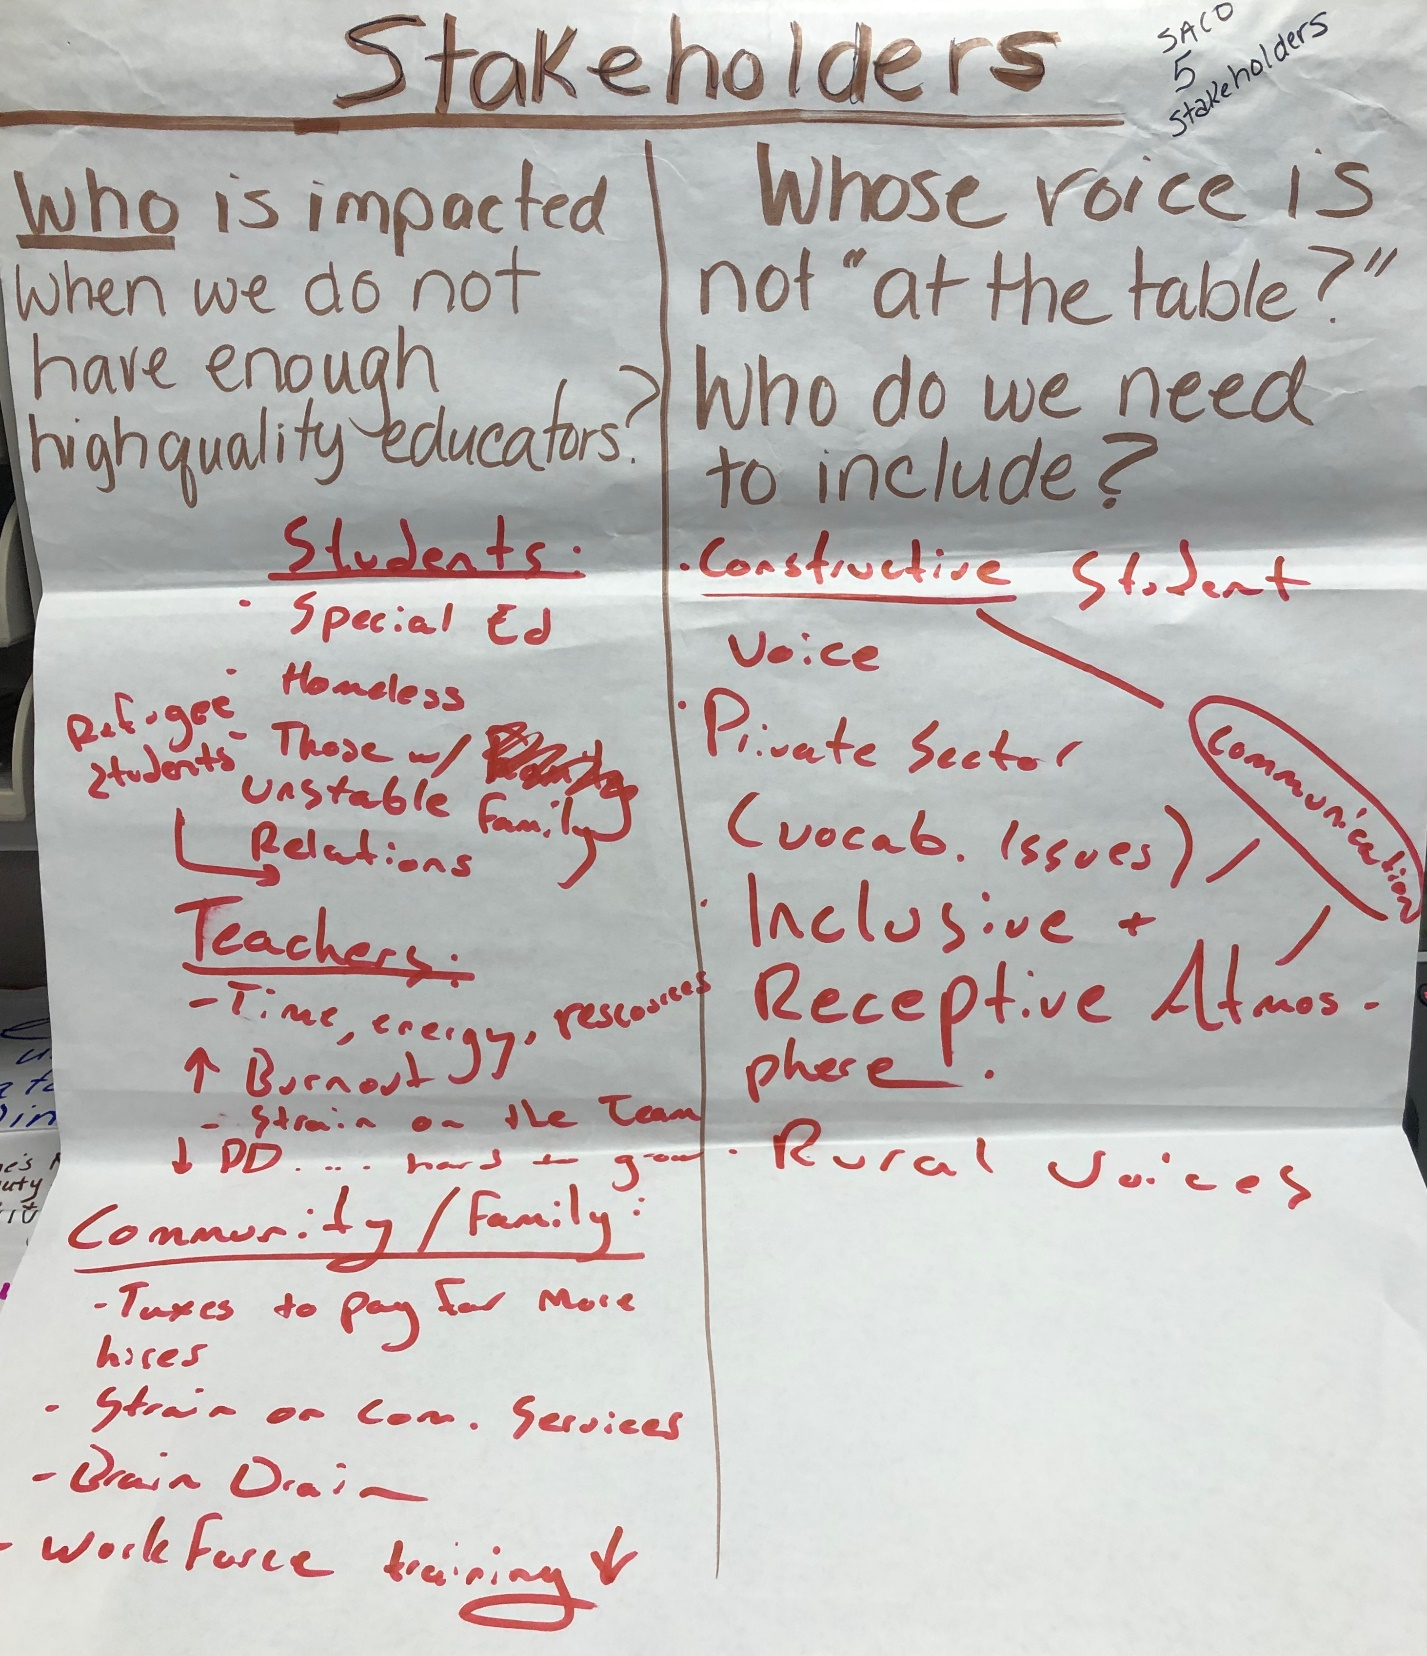 Stakeholders
SACO
5
Stakeholders
Who is impacted
when we do not
have enough
high quality educators?
Students:
· Special Ed
· Homeless
Refugee
Students
- Those w/
unstable Family
Relations
Teachers:
- Time, energy, rescources
↑ Burnout
- Strain on the Team
↓ PD .... hard to grow
Community/Family:
- Taxes to pay for more
hires
- Strain on Com. Services
- Brain Drain
- Workforce training ↓
Whose voice is
not "at the table?"
Who do we need
to include?
· Constructive Student
Voice
· Private Sector
(vocab. Issues)
Communication
· Inclusive +
Receptive Atmos-
phere.
· Rural Voices